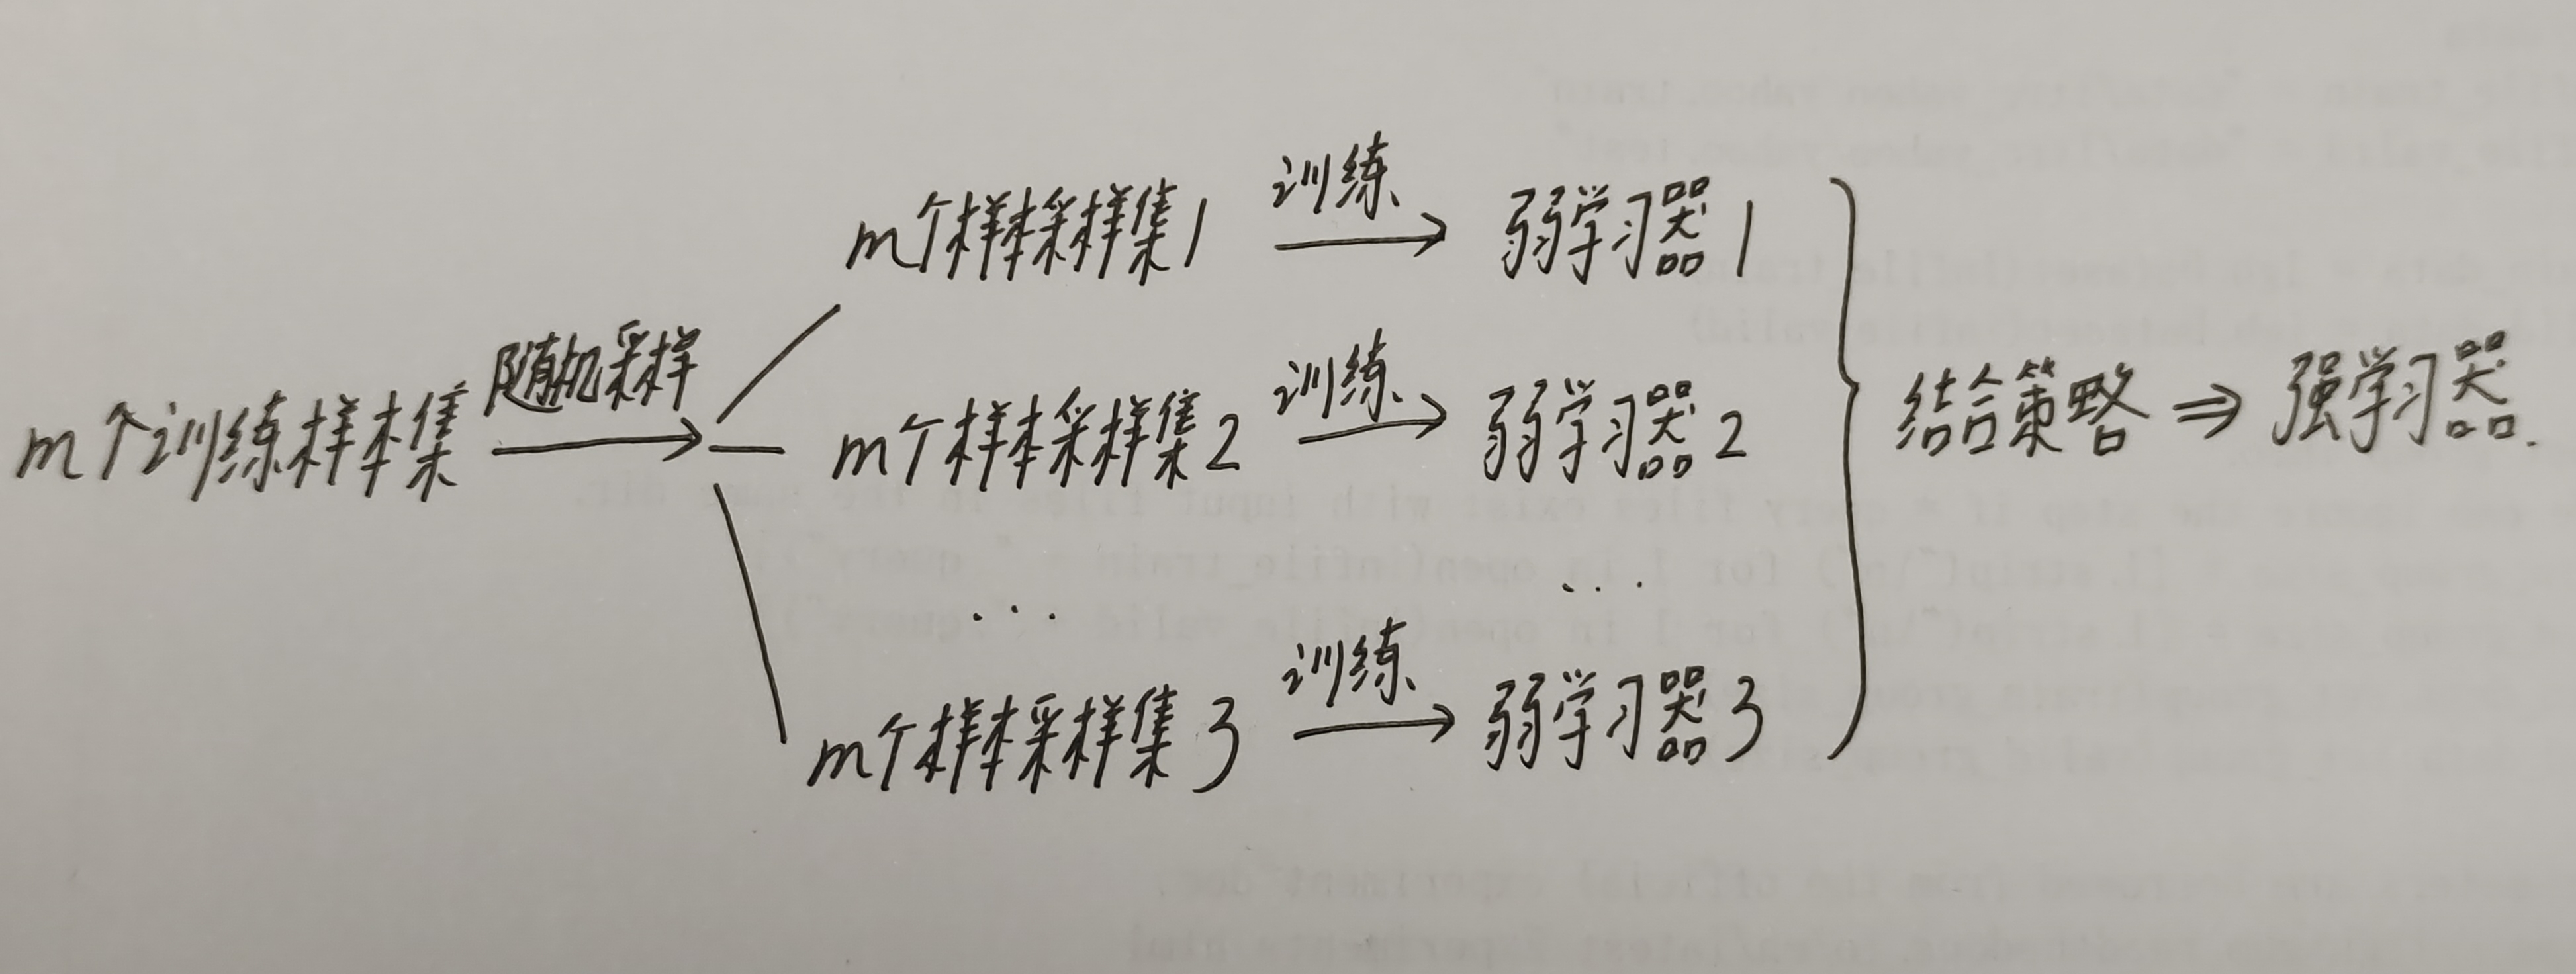 m个训练样本集 随机采样
m个样本采样集1 训练 弱学习器1
m个样本采样集2 训练 弱学习器2
... ...
m个样本采样集3 训练 弱学习器3
结合策略 ⇒ 强学习器.